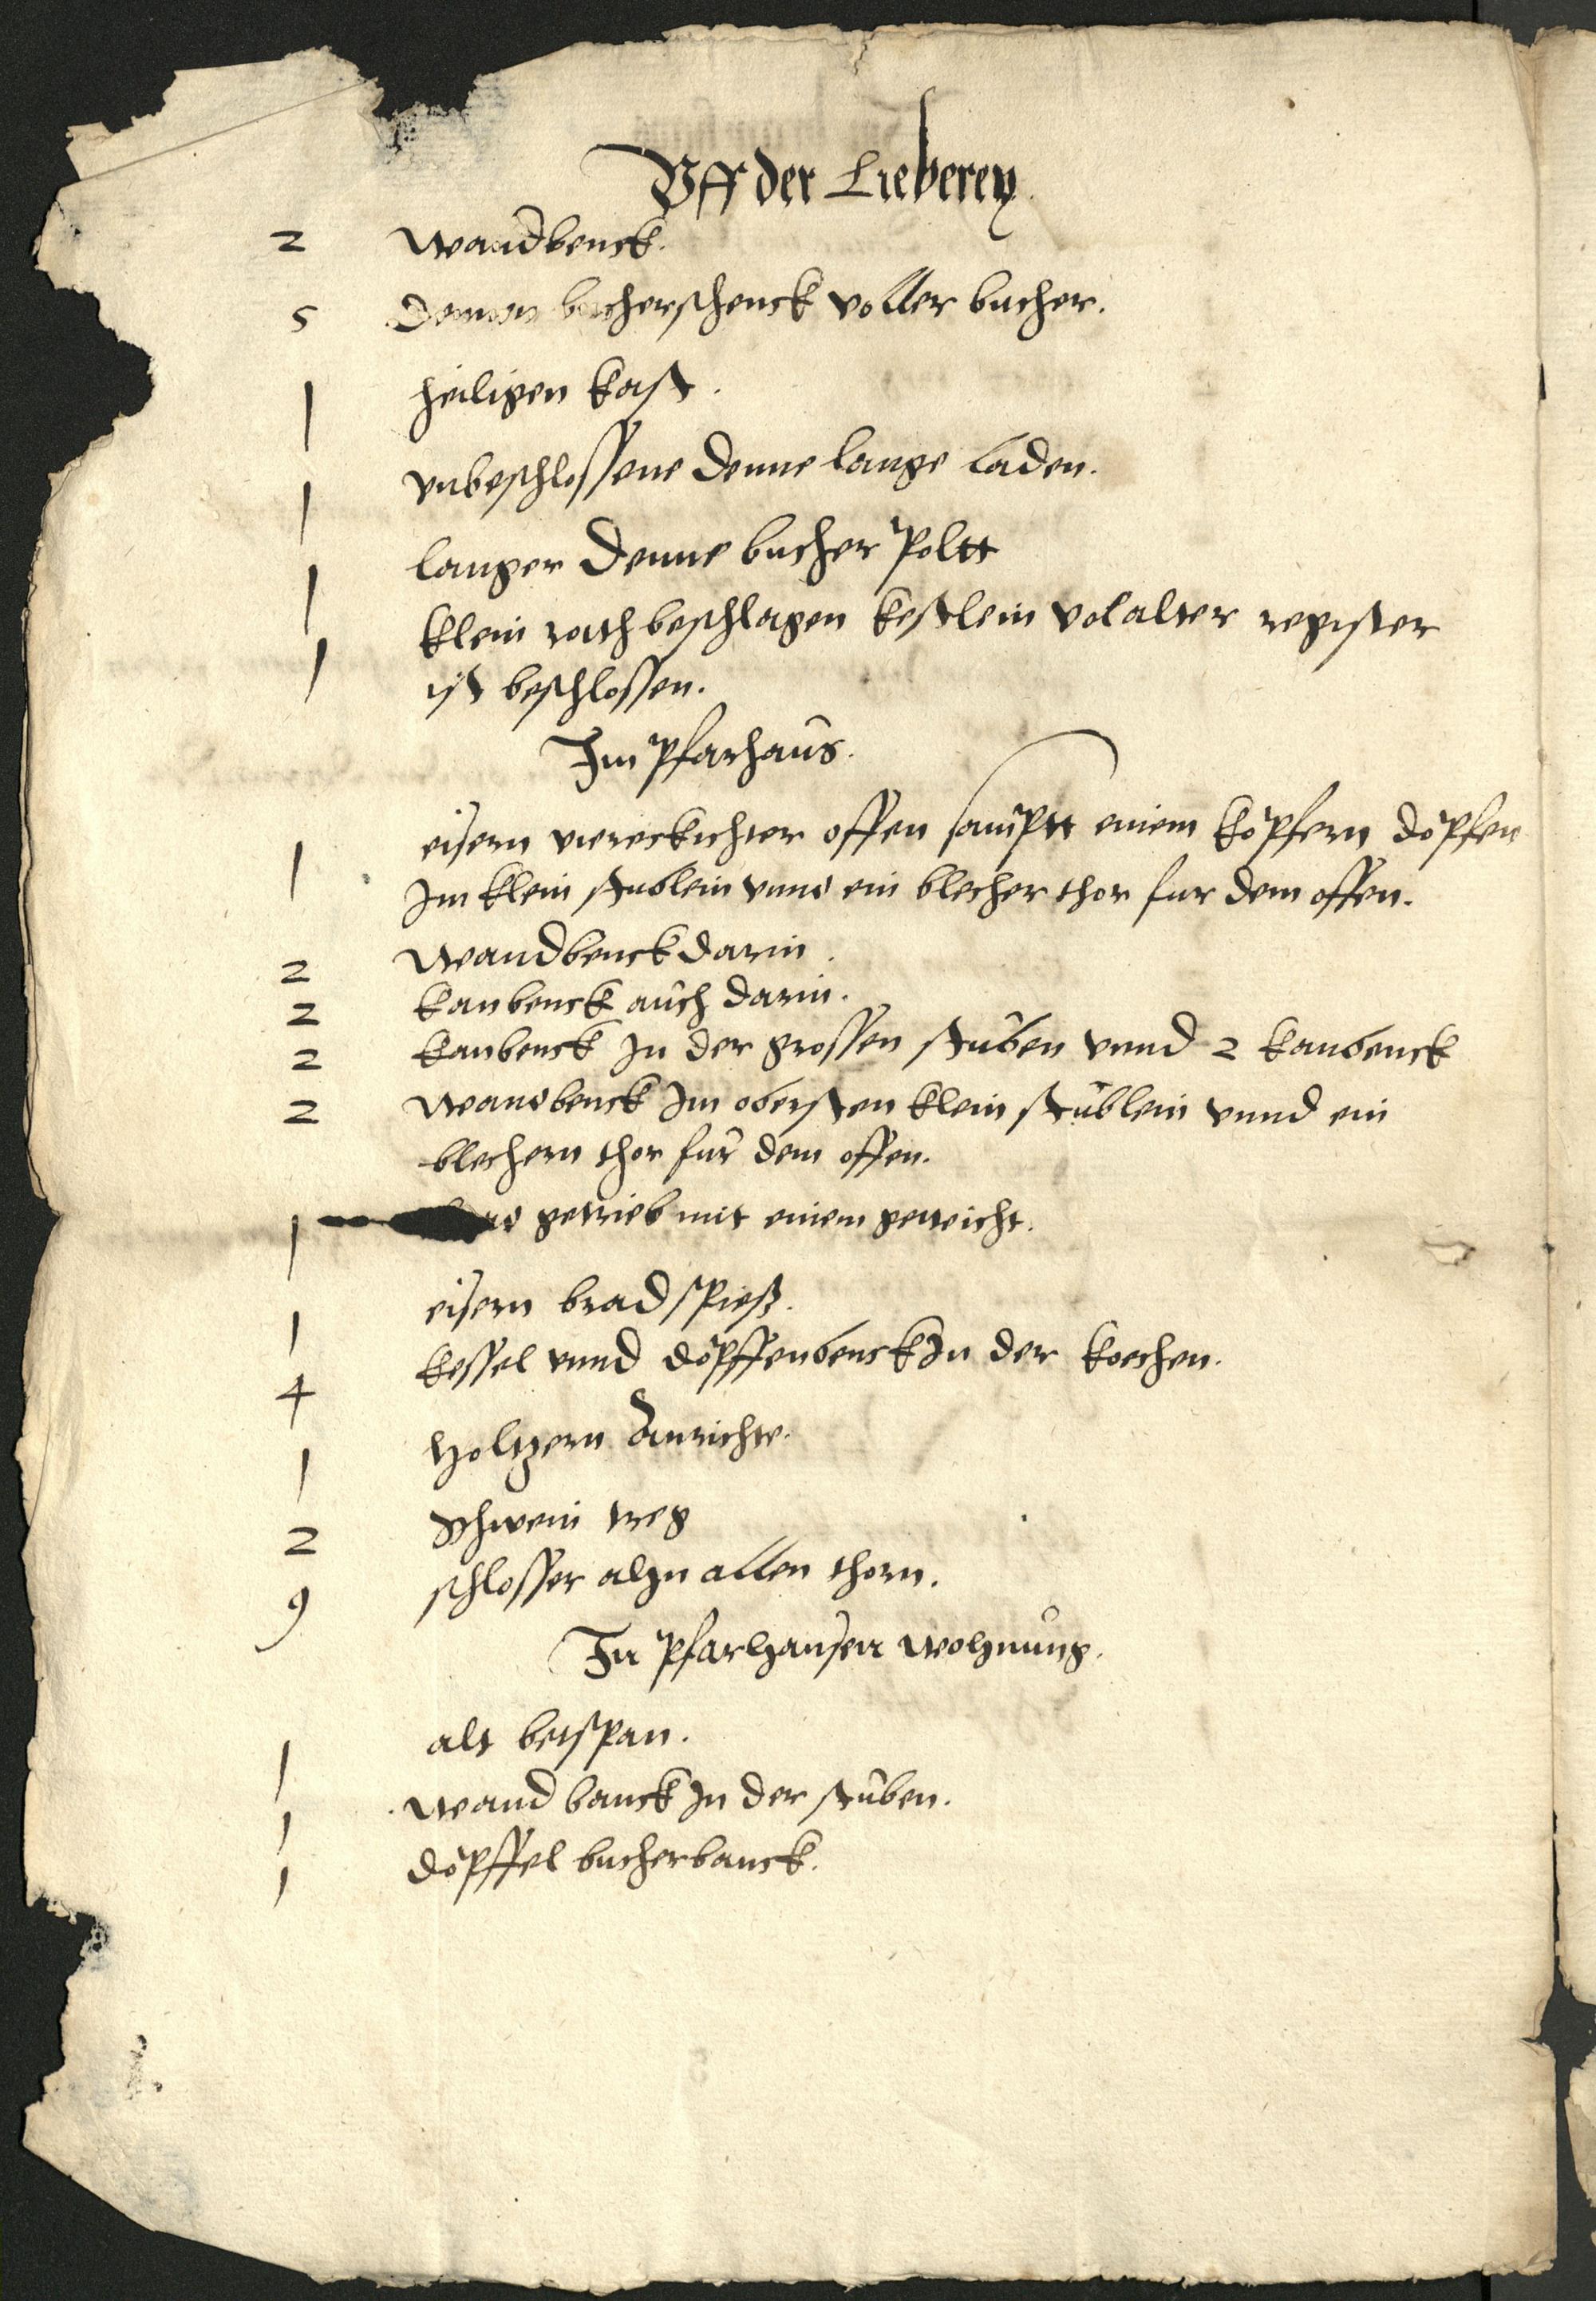 Vff der Lieberey.
2 wandbenck.
5 Dennen bucherschenck voller bucher.
1 heiligen kast.
1 vnbeschlossene Denne lange laden.
1 langer Denne bucher Poltt
1 klein roth beschlagen kestlein vol alter register
ist beschlossen.
Im Pfarhaus.
1 eisern viereckichter offen samptt einem köpfern döpfen
Jm klein stublein vnnd ein blecher thor fur dem offen.
2 wandbenck darin.
2 kanbenck auch darin.
2 kanbenck Jn der grossen stuben vnnd 2 kanbenck
2 wandbenck Jm obersten klein stüblein vnnd ein
blechern thor fur dem offen.
1 getrieb mit einem geweicht.
1 eisern bradspieß.
4 kessel vnnd döpffenbenck Jn der kuchen.
1 holtzern Anrichte.
2 Schwein treg
9 schlosser alhn allen thorn.
In Pfarhansen wohnung.
1 alt betspan.
1 wandbanck Jn der stuben.
1 döpffel bucherbanck.